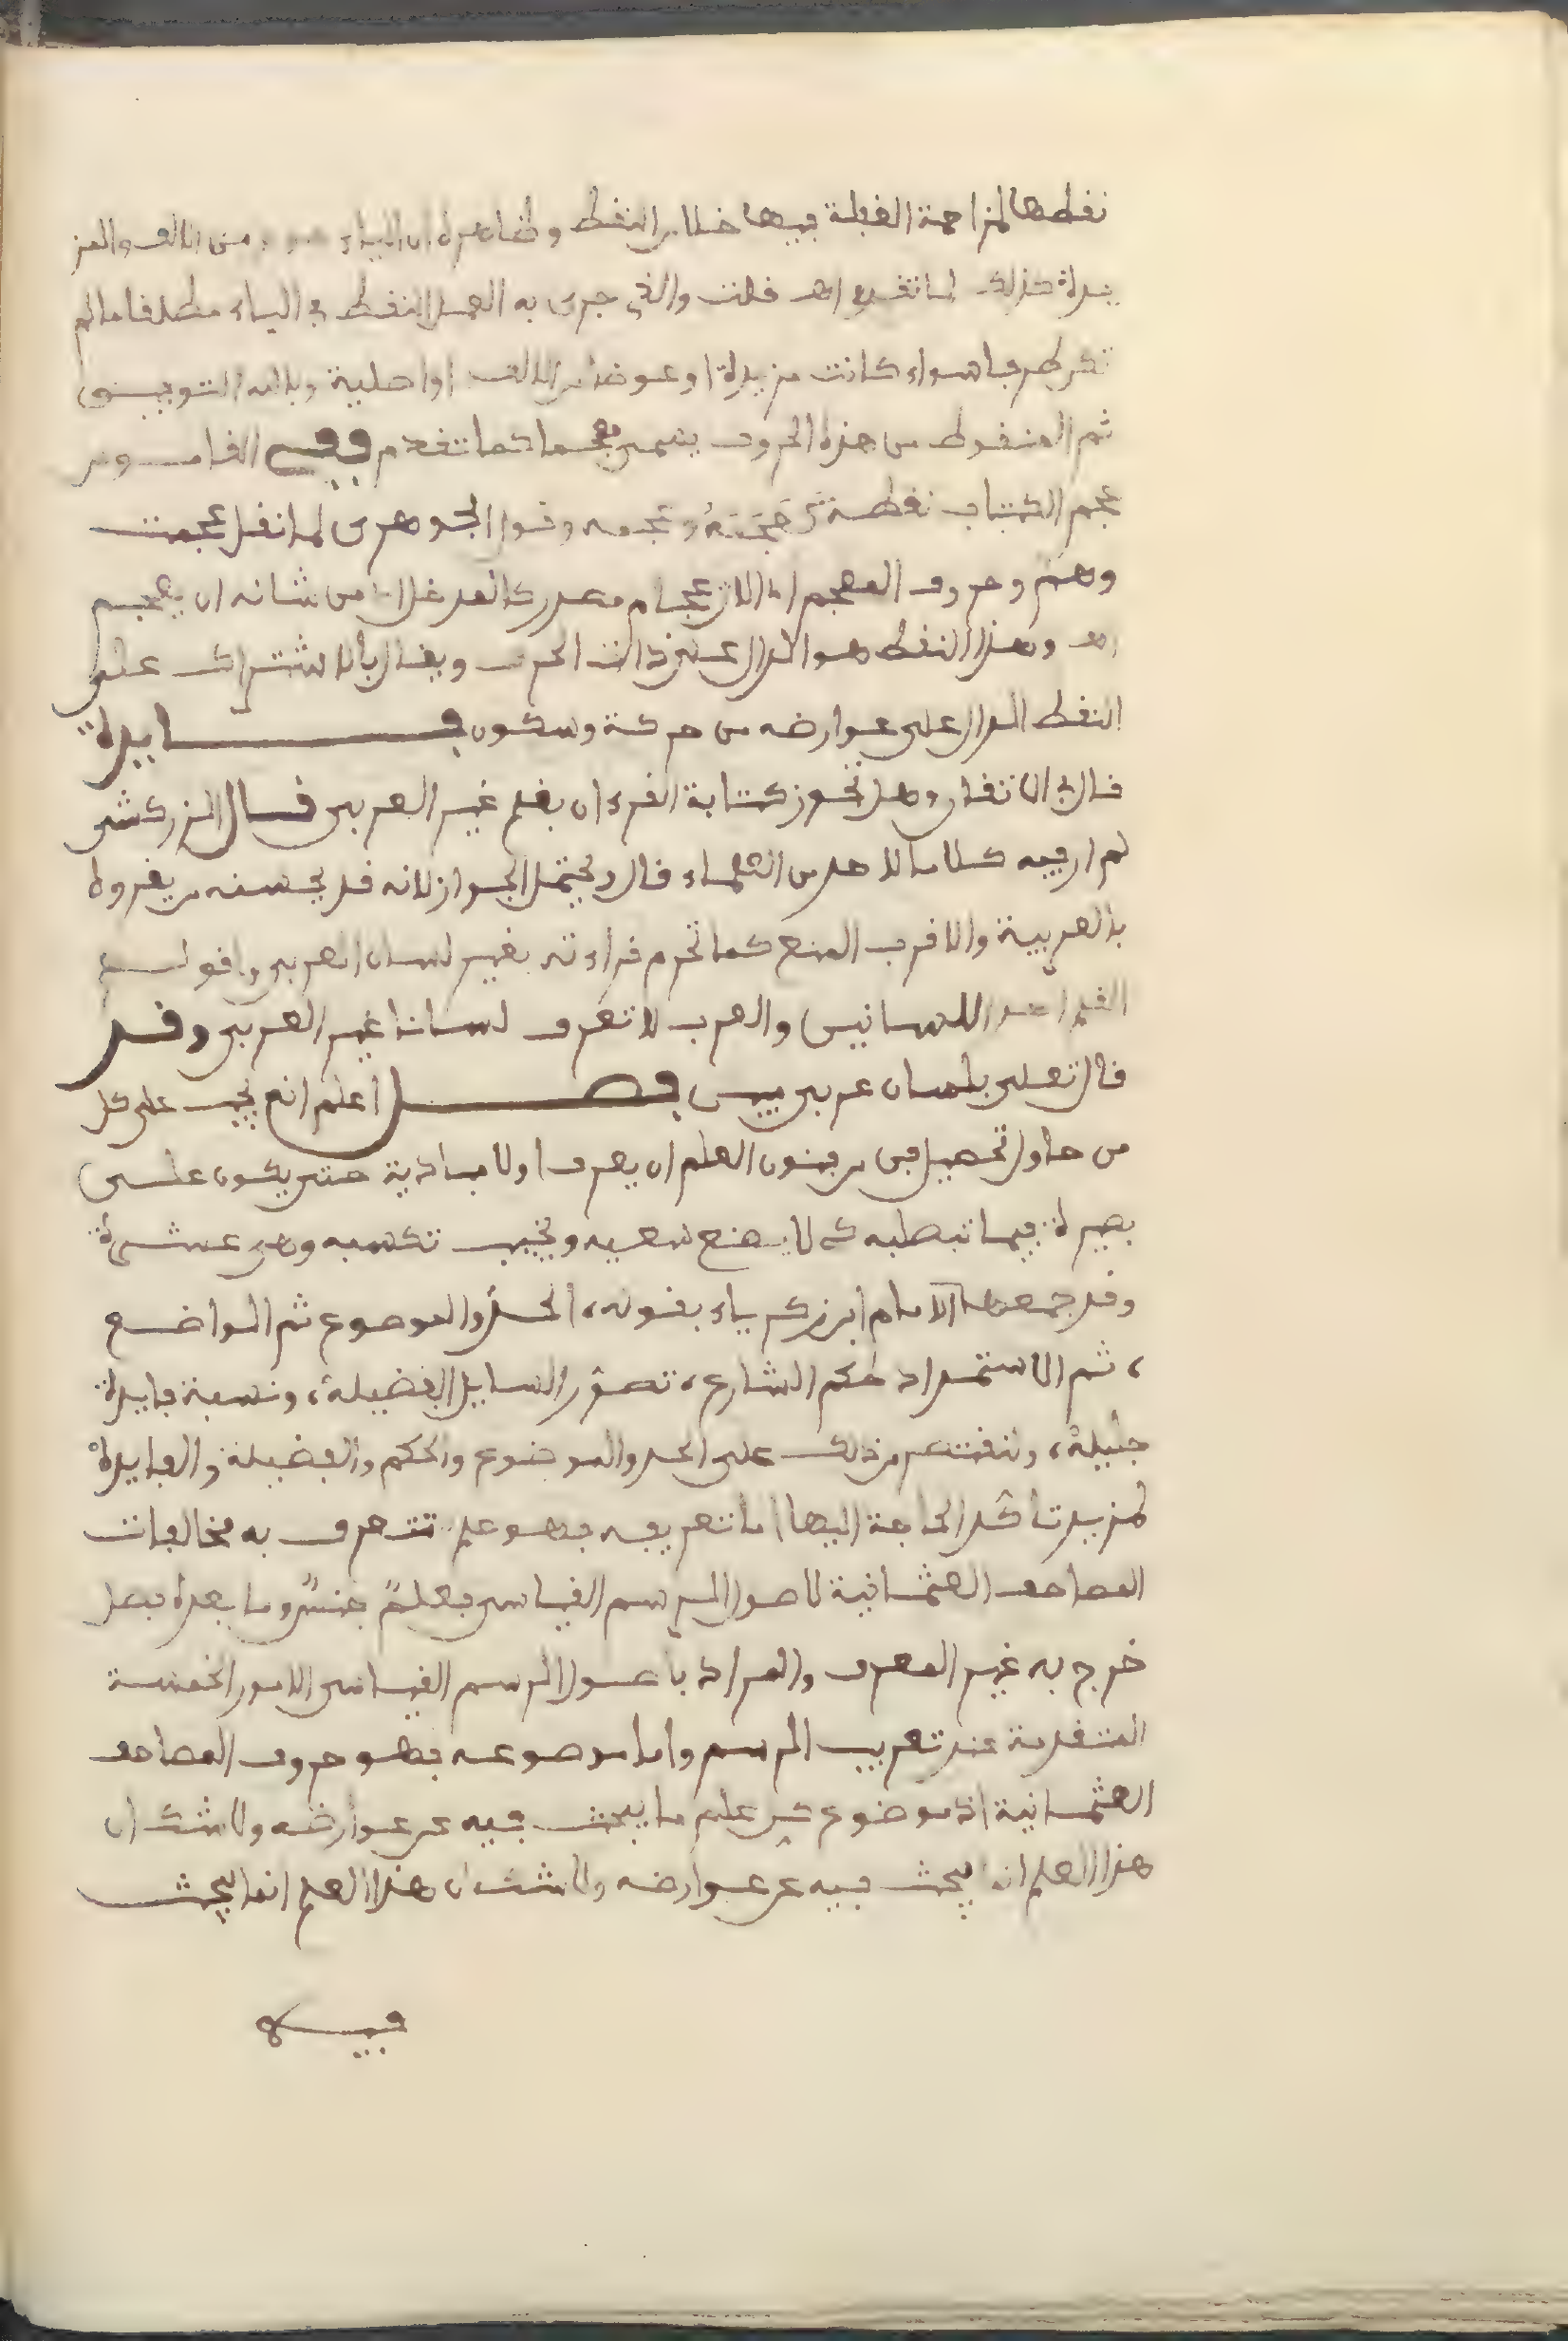 نقطها لمزاحمة القبلة فيها خلا من النقط وظاهره ان الياء من الالف والمز
يدة كذلك لما تقدم اهـ قلت والذي جرى به العمل النقط في الياء مطلقا ما لم
تكن طرفا سواء كانت مزيدة او عوضا من الالف او اصلية وبالله التوفيق
ثم المنقوط من هذه الحروف يسمى معجما كما تقدم وفي القاموس
عجم الكتاب نقطه وعجمه وقول الجوهري لا تقل عجمت
وهم وحروف المعجم اي الاعجام مصدر كالمدخل اي من شانه ان يعجم
اهـ وهذا النقط هو الدال على ذات الحرف ويقال بالاشتراك على
النقط الدال على عوارضه من حركة وسكون فايدة
قال في الاتقان وهل تجوز كتابة القرءان بقلم غير العربي قال الزركشي
لم ار فيه كلاما لاحد من العلماء قال ويحتمل الجواز لانه قد يحسنه من يقروه
بالعربية والاقرب المنع كما تحرم قراءته بغير لسان العربي ولقولهم
القلم احد اللسانين والعرب لا تعرف لسانا غير العربي وقد
قال تعلى بلسان عربي مبين فصل اعلم انه يجب على كل
من حاول تحصيل فن من فنون العلم ان يعرف اولا مباديه حتى يكون على
بصيرة فيما تبطلبه كي لا يضع سعيه وتخيب نكسبه وهي عشرة
وقد جمعها الامام ابن زكرياء بقوله، الحد والموضوع ثم الواضع
، ثم الاستمداد حكم الشارع، تصور المسايل الفضيلة، ونسبة فايدة
جليلة، ولنقتصر من ذلك على الحد والموضوع والحكم والفضيلة والفايدة
لمزيد تأكد الحاجة اليها اما تعريفه فهو علم تتعرف به مخالفات
المصاحف العثمانية لاصول الرسم القياسي فعلم جنس وما بعده فصل
خرج به غير المعرف والمراد باصول الرسم القياسي الامور الخمسة
المتقدمة عند تعريف الرسم واما موضوعه فهو حروف المصاحف
العثمانية اذ موضوع كل علم ما يبحث فيه عن عوارضه ولا شك ان
هذا العلم انما يبحث فيه عن عوارضه ولا شك ان هذا العلم انما يبحث
فيه